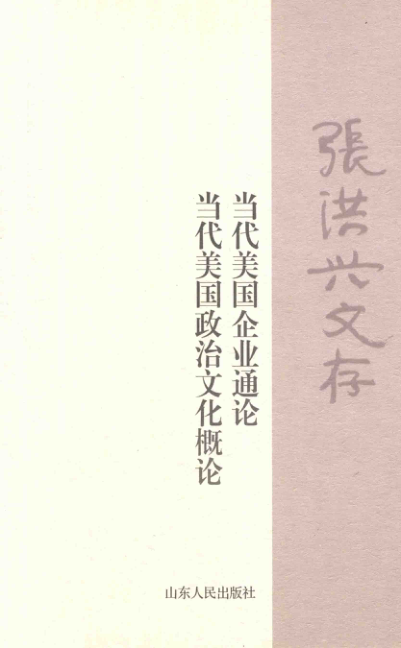 張洪兴文存
当代美国企业通论
当代美国政治文化概论
山东人民出版社